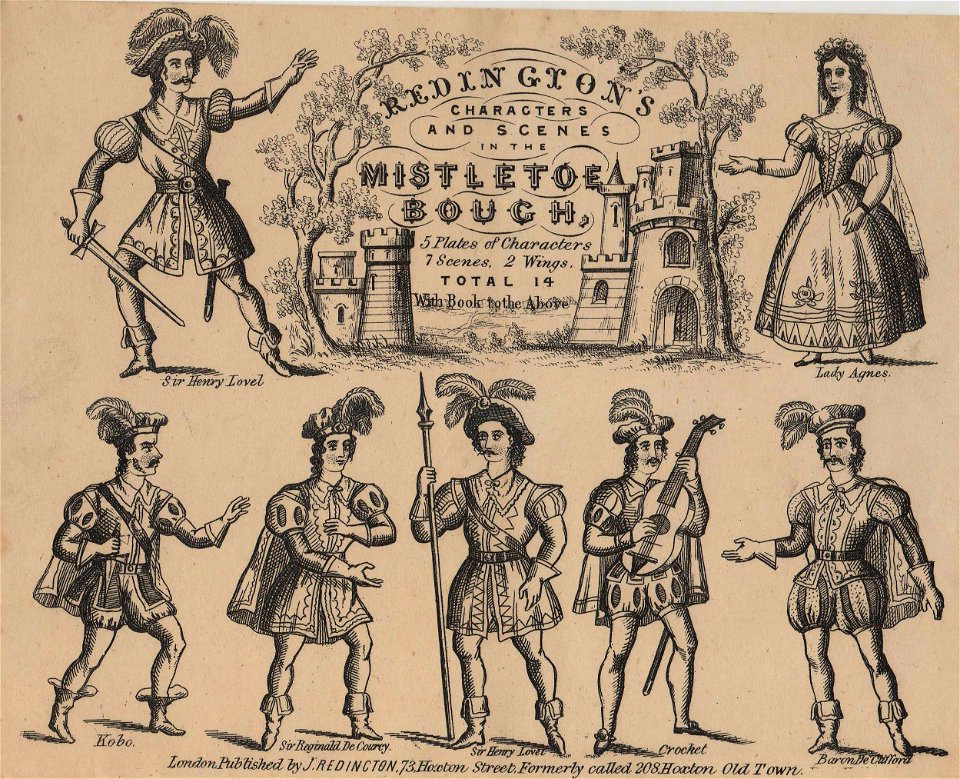 REDINGTON'S
CHARACTERS
AND SCENES
IN THE
MISTLETOE
BOUGH,
5 Plates of Characters
7 Scenes, 2 Wings.
TOTAL 14
With Book to the Above
Sir Henry Lovel
Lady Agnes.
Kobo.
Sir Reginald De Courcy.
Sir Henry Lovel
Crochet
Baron De Clifford
London, Published by J. REDINGTON, 73, Hoxton Street, Formerly called 208, Hoxton Old Town.